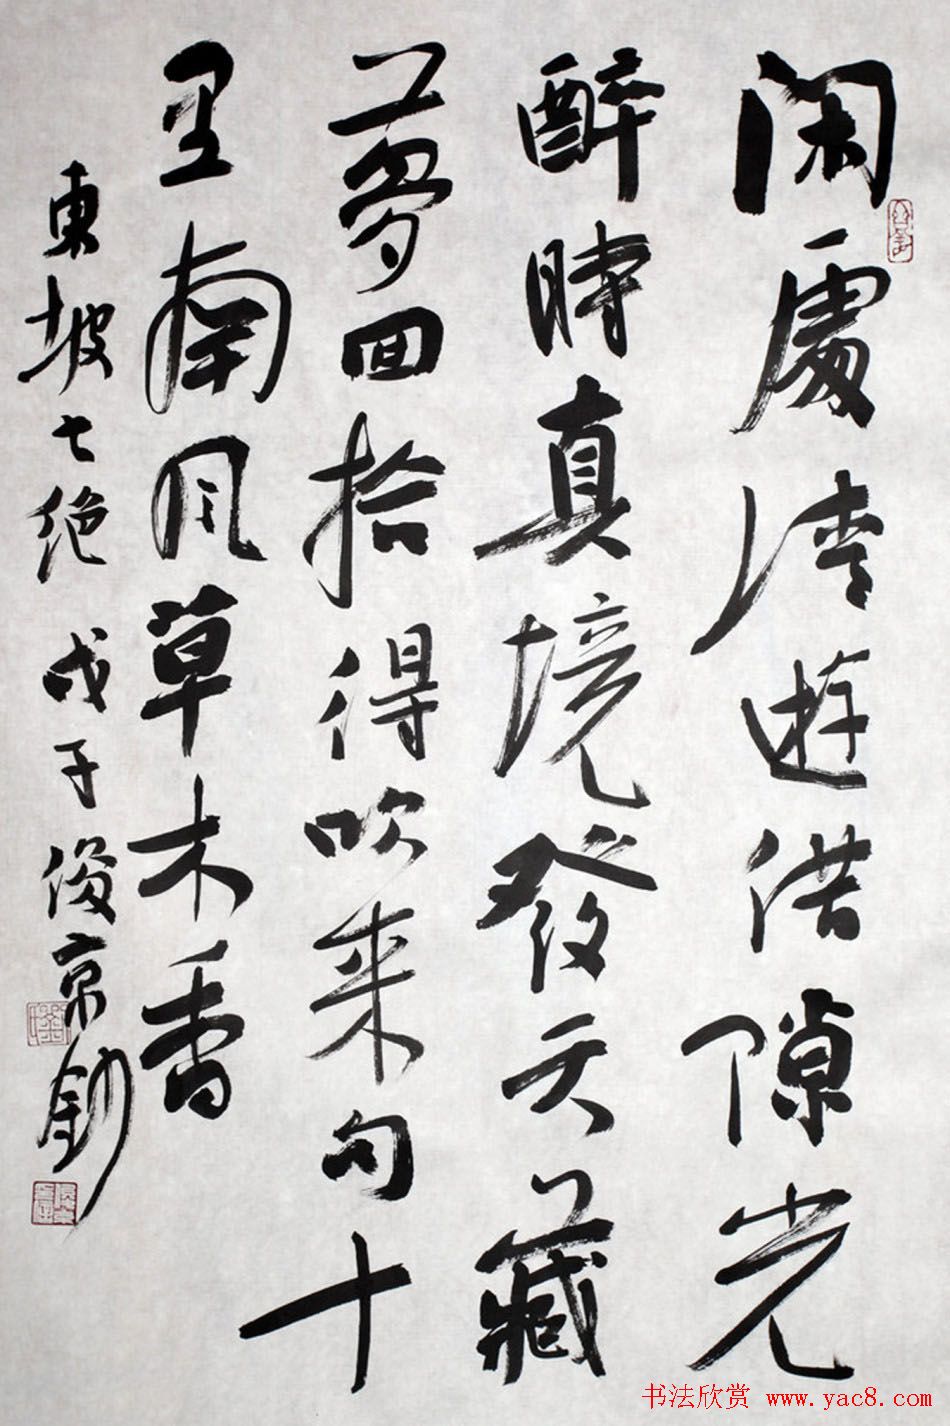 闲處清遊借隙光
醉時真境發天藏
夢回拾得吹来句十
里南風草木香
東坡七絕 戊子俊京鈔
书法欣赏 www.yac8.com